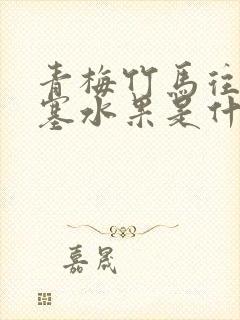 青梅竹马往
塞水果是什
嘉晟